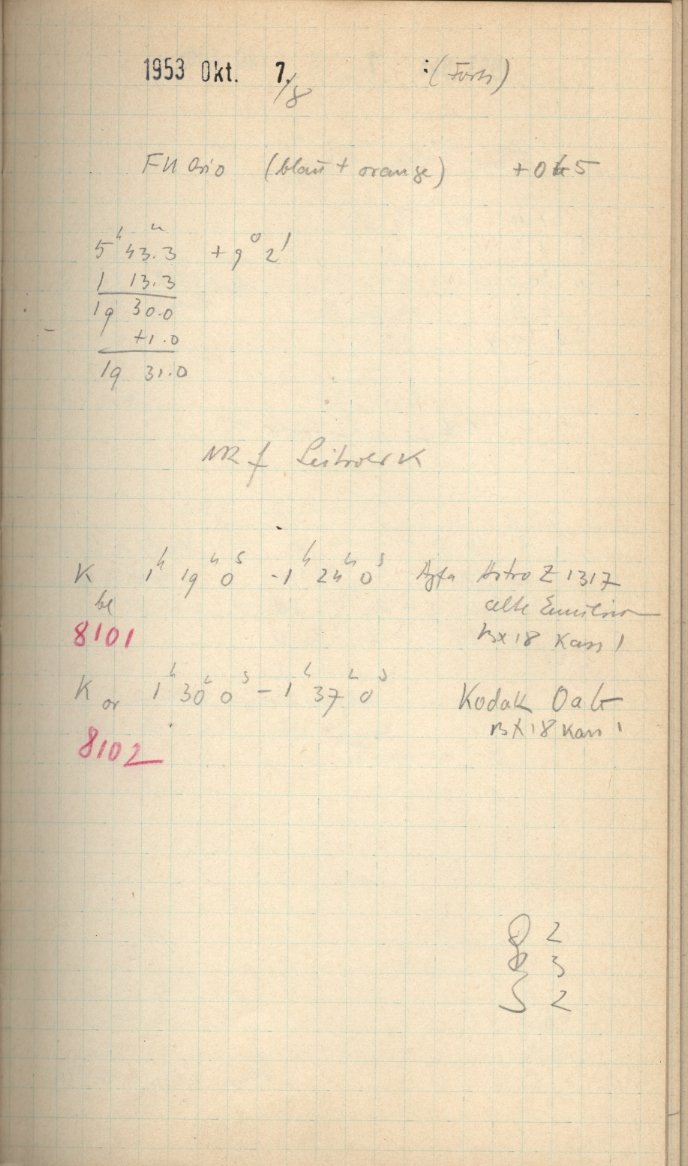 1953 Okt. 7./8 (Forts)
FU Orio (blau + orange) + 0h5
5h 43.3m + 9° 2'
1 13.3
19 30.0
+1.0
19 31.0
NR f
K bl 1h 19m 0s - 1h 24m 0s Agfa Astro Z 1317
8101 alte Emulsion
Bx18 Kass 1
K or 1h 30m 0s - 1h 37m 0s Kodak OaG
8102 Bx18 Kass 1
2
3
S 2